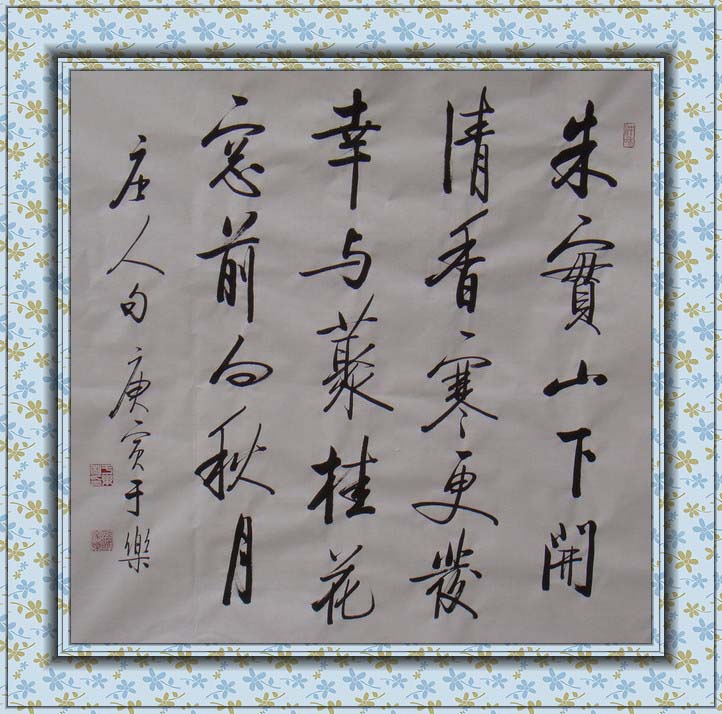 朱實山下開
清香寒更發
幸与藂桂花
窓前向秋月
唐人句庚寅于樂